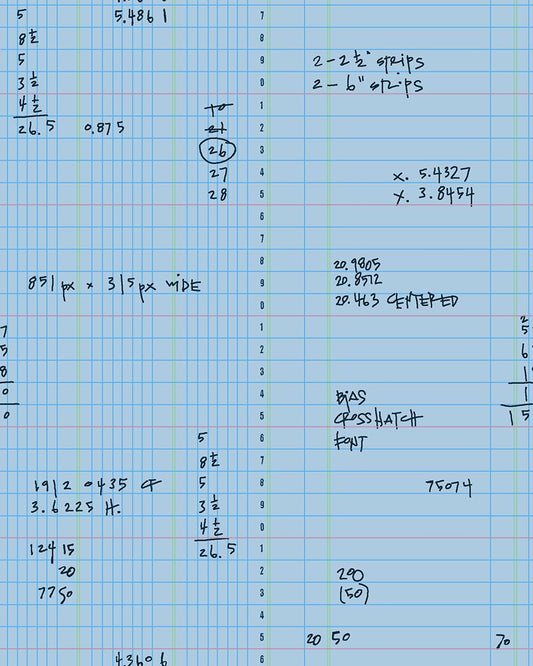 5
5.4861
8 ½
5
3 ½
4 ½
26.5 0.875
2 - 2 ½" strips
2 - 6" strips
21
26
27
28
x. 5.4327
y. 3.8454
7
8
9
0
1
2
3
4
5
6
7
8
9
0
1
2
3
4
5
6
7
8
9
0
1
2
3
4
5
6
851 px x 315 px WIDE
20.9805
20.8512
20.463 CENTERED
7
5
8
0
0
2
5
6
1
1
15
BIAS
CROSSHATCH
FONT
5
8 ½
5
3 ½
4 ½
26.5
1912 0435 CF
3.6225 H.
12415
20
7750
75074
290
(50)
20 50
70
4.3606